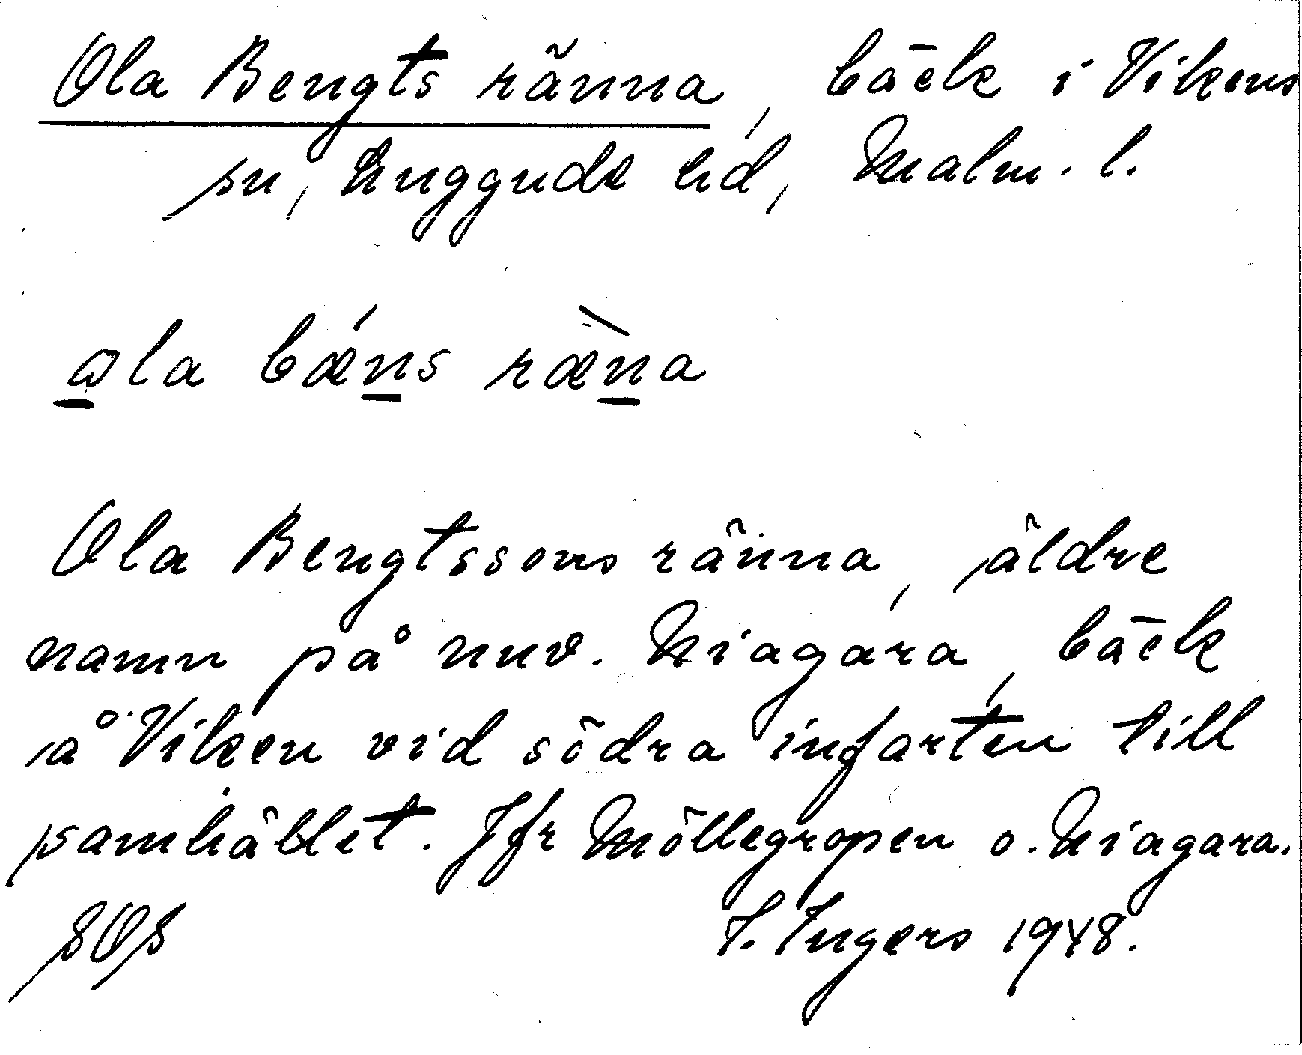 Ola Bengts ränna, bäck i Vikens
sn, Luggude hd, Malm. l.
ɷla bǽns ræ̀na
Ola Bengtssons ränna, äldre
namn på nuv. Niagara, bäck
å Viken vid södra infarten till
samhället. Jfr Möllegropen o. Niagara.
SOS I. Ingers 1948.